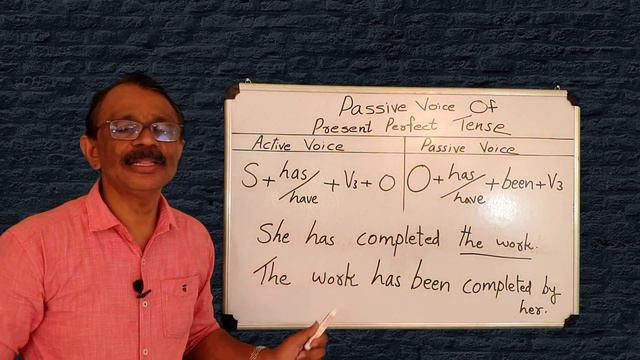 Passive Voice Of
Present Perfect Tense
Active Voice
Passive Voice
S + has/have + V3 + O
O + has/have + been + V3
She has completed the work.
The work has been completed by
her.